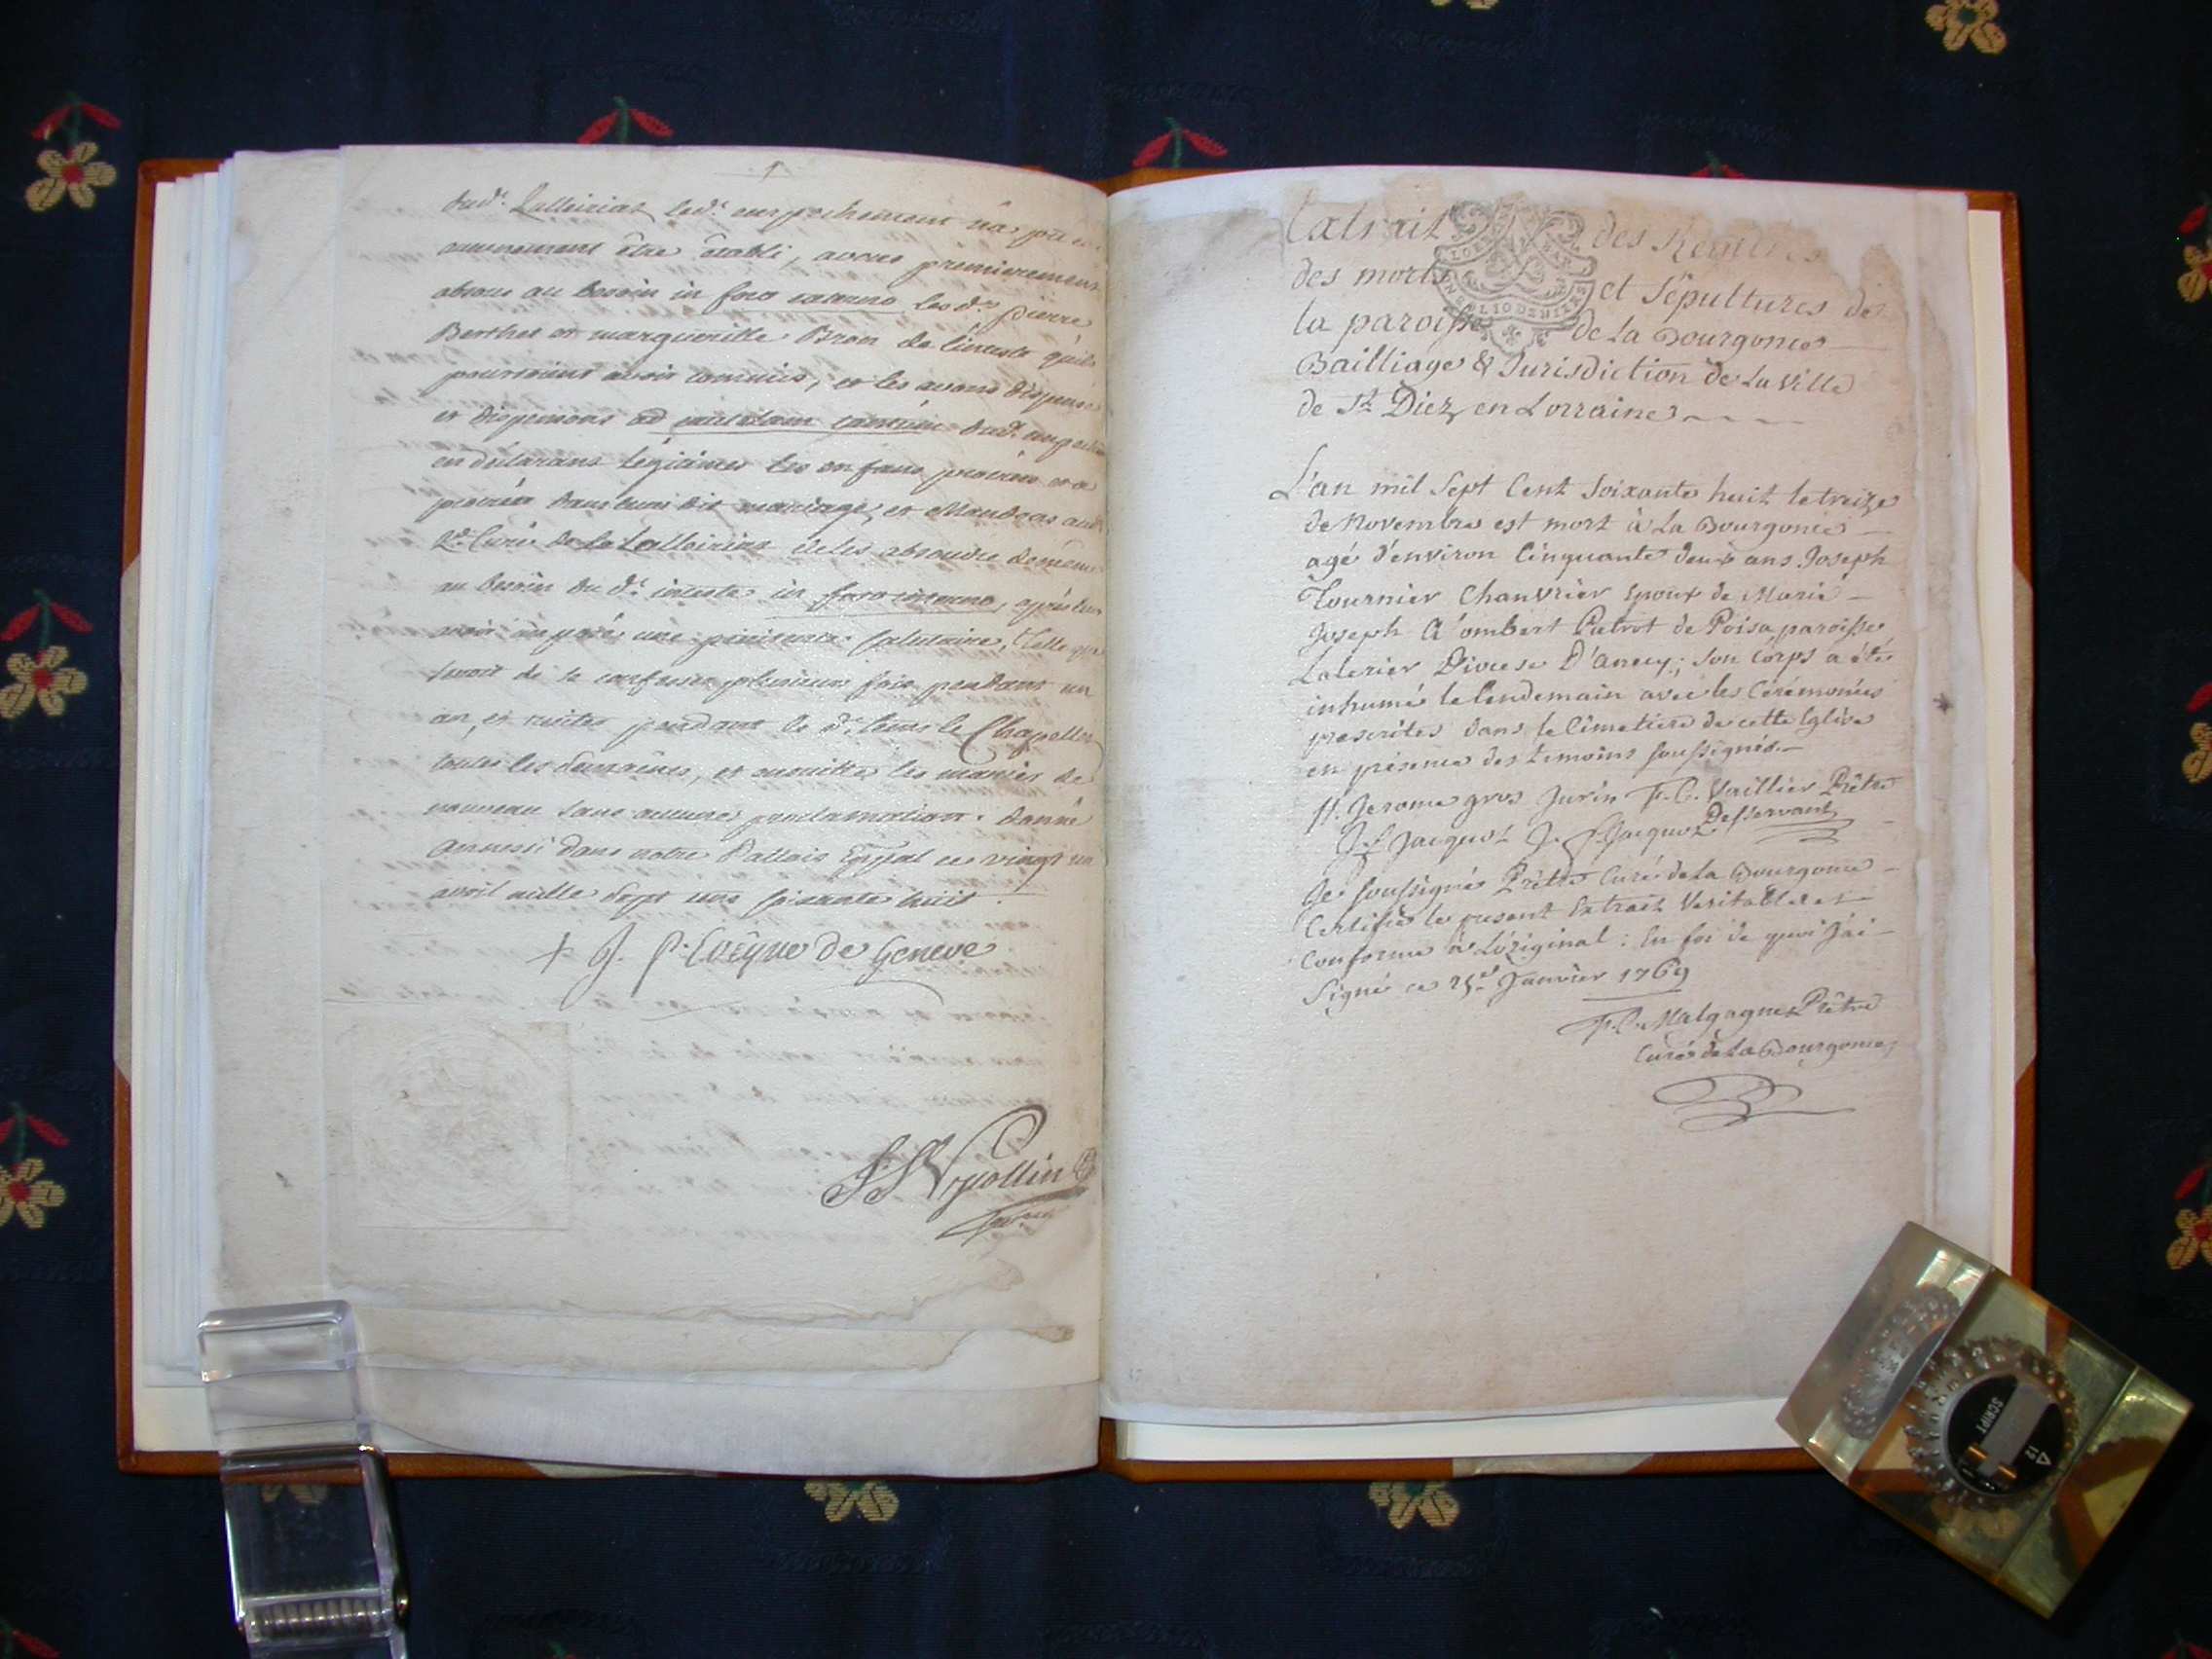 dud.t Lalleiriat led.t empechement n'a pû
aucunement être établi, avons premierement
absous au besoin in foro externo les d.ts pierre
Berthet et margueritte Bron de l'inceste qu'ils
pourroient avoir commis, et les avons dispensé
et dispensons ad cautelam tantùm dud.t
en declarans légitimes les enfans procréés et a
procréer dans leur dit mariage, et Mandons
Curé de la Lalleiriat de les absoudre de même
au besoin du d.t inceste in foro interno, après leur
avoir imposé une pénitence salutaire, telle que
seroit de se confesser plusieurs fois pendant un
an, et reciter pendant le d.t tems le Chapellet
toutes les semaines, et ensuitte les marier de
nouveau sans aucune proclamation. Donné
Annessi dans notre Pallais ce vingt un
avril mille sept cens soixante huit.
+ J. P. Evêque de Geneve
Extrait des Registres
des morts et Sépultures de
la paroisse de La Bourgonce
Bailliage & Jurisdiction de La Ville
de St Diez en Lorraine
L'an mil Sept Cent Soixante huit le treize
de Novembre est mort à La Bourgonce
agé d'environ Cinquante deux ans Joseph
Tournier Chanvrier Epoux de Marie
Joseph de Poisa paroisse
Diocese D'anecy; Son Corps a été
inhumé le lendemain avec les Cérémonies
prescrites dans le Cimetiere de cette Eglise
en présence des temoins soussignés.
Jerome gros Jurin F. C. Vaillier Prêtre
J. f Jacquot J. f. Jacquot Desservant
Je soussigné Prêtre Curé de La Bourgonce
Certifie le present Extrait Veritable et
Conforme à L'original: En foi de quoi J'ai
Signé ce 25e Janvier 1769
F. C. Malgagne Prêtre
Curé de La Bourgonce
SCRIPT
12